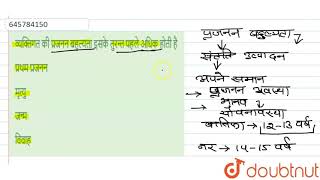 645784150
व्यक्तिगत की प्रजनन बहुल्यता इसके तुरन्त पहले अधिक होती है
प्रथम प्रजनन
मृत्यु
जन्म
विवाह
प्रजनन बहुल्यता
संतति उत्पादन
अपने समान
प्रजनन अवस्था
मानव
यौवनावस्था
बालिका → 12-13 वर्ष
नर → 14-15 वर्ष
doubtnut